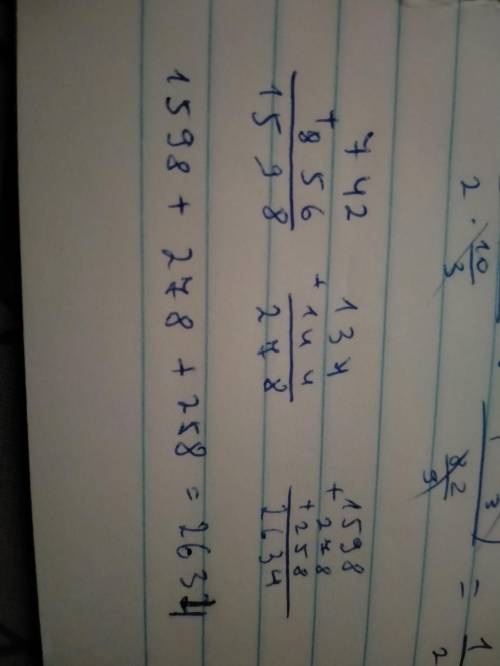 2 · 10/3
82/9
= 1/2
742
+ 856
1598
134
+ 144
278
+ 1598
278
+ 258
2634
1598 + 278 + 258 = 2634